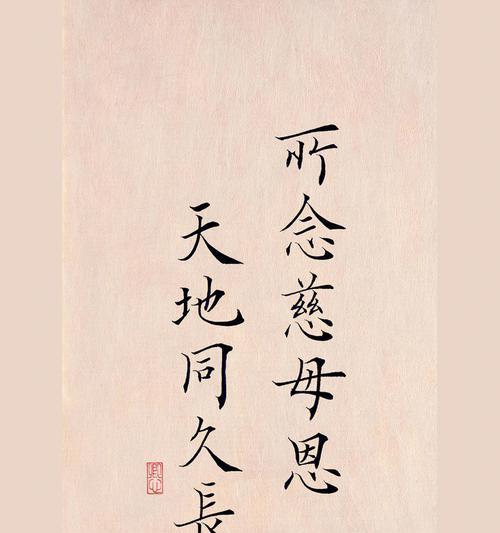 所念慈母恩
天地同久長